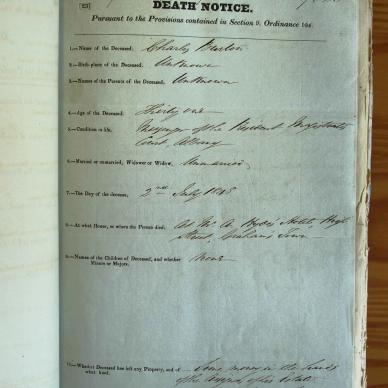 DEATH NOTICE.
Pursuant to the Provisions contained in Section 9, Ordinance 104.
1.—Name of the Deceased, Charles
2.—Birth-place of the Deceased, Unknown
3.—Names of the Parents of the Deceased, Unknown
4.—Age of the Deceased, Thirty one
5.—Condition in life, Messenger of the Resident Magistrate's
Court, Albany
6.—Married or unmarried, Widower or Widow, Unmarried
7.—The Day of the decease, 2nd July
8.—At what House, or where the Person died, At Mr. Hotel,
Street, Graham's Town
9.—Names of the Children of Deceased, and whether None
Minors or Majors.
10.—Whether Deceased has left any Property, and of Some money in the hands
what kind. of the